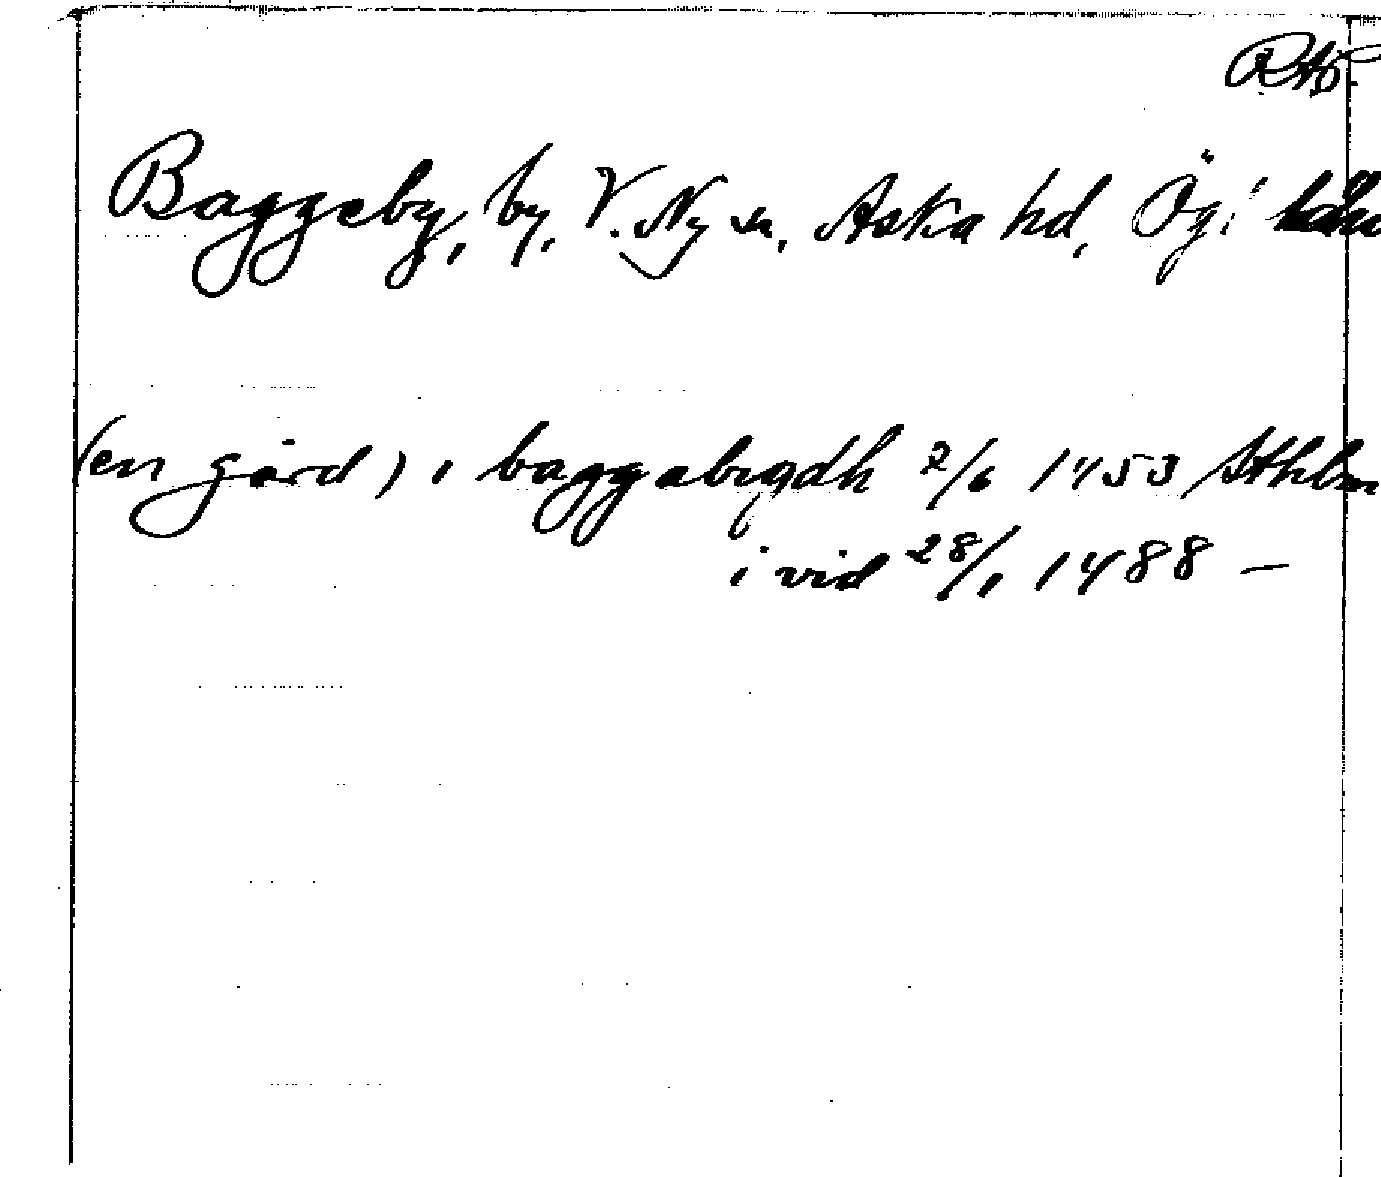 Baggeby, by, V. Ny sn, Aska hd, Ög.
(en gård) i baggabygdh 2/6 1453 Sthlm
i vid 28/1 1488 —